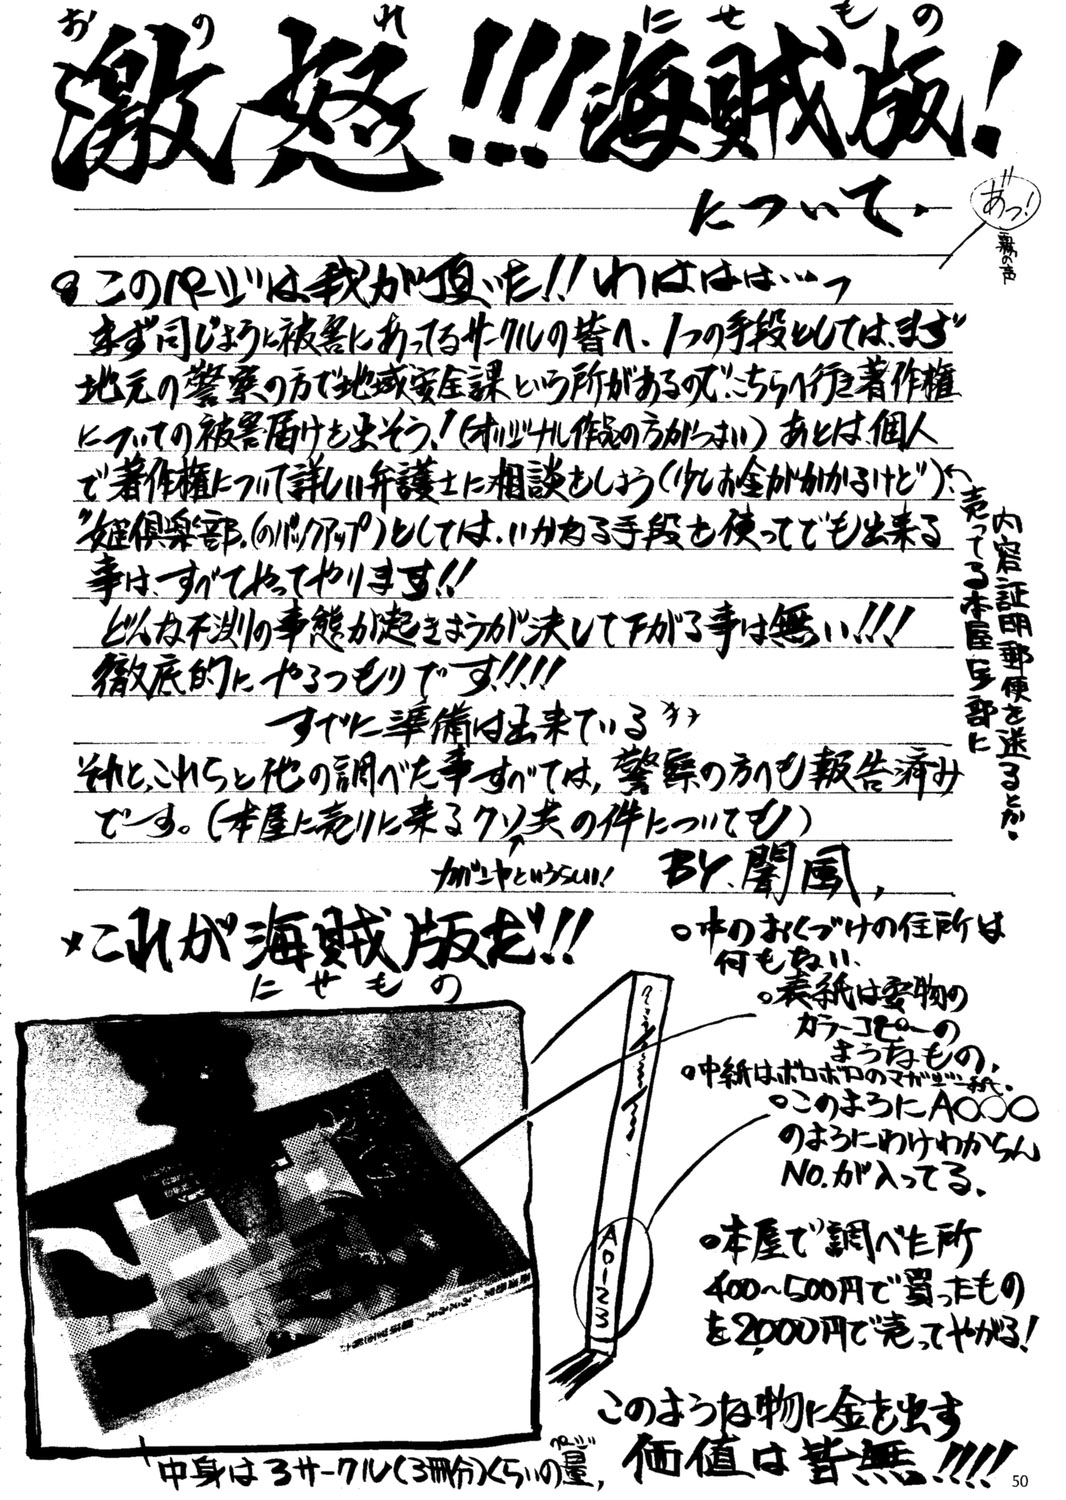 おのれ にせもの
激怒!!!海賊版!
について.
あっ!
霧の声
このページは我が頂いた!!わははは…っ
まず同じように被害にあってるサークルの皆へ、1つの手段としては、まず
地元の警察の方で地域安全課という所があるので、こちらへ行き著作権
についての被害届けを出そう!(オリジナル作品の方がつよい)あとは、個人
で著作権について詳しい弁護士に相談をしよう(少しお金がかかるけど)
内容証明郵便を送るとか.
売ってる本屋全部に
"姫倶楽部"(のバックアップ)としては、いかなる手段を使ってでも出来る
事は、すべてやってやります!!
どんな不測の事態が起きようが決して下がる事は無い!!!
徹底的にやるつもりです!!!!
すでに準備は出来ている
それと、これらと他の調べた事すべては、警察の方へも報告済み
です。(本屋に売りに来るクソ共の件についても)
カバンヤというらしい!
BY.闇風,
これが海賊版だ!!
にせもの
中のおくづけの住所は
何もない.
表紙は本物の
カラーコピーの
ようなもの,
中紙はボロボロのマガジン紙.
このようにA○○○
のようにわけわからん
NO.が入ってる.
A0123
本屋で調べた所
400~500円で買ったもの
を2,000円で売ってやがる!
このような物に金を出す
価値は皆無!!!!
中身は3サークル(3冊分)くらいの量,
ページ
50